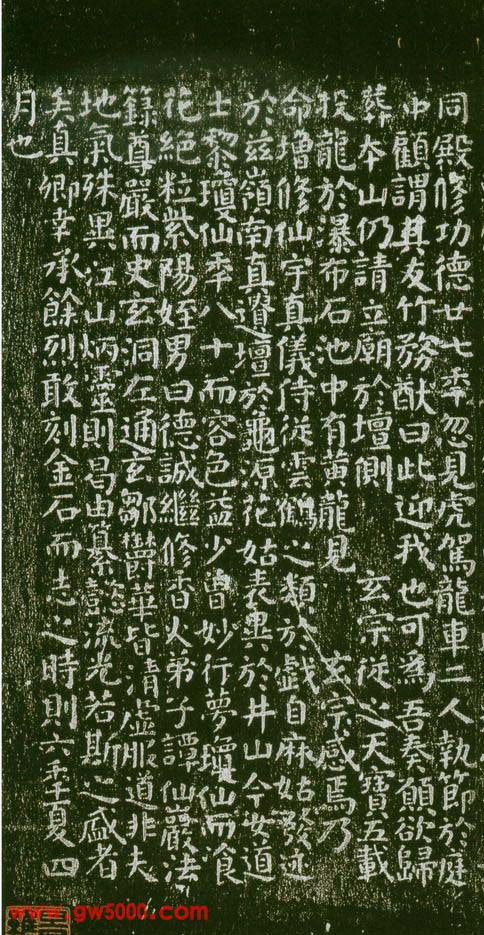 同殿修功德廿七季忽見虎駕龍車二人執節於庭
中顧謂其友竹務猷曰此迎我也可為吾奏願欲歸
葬本山仍請立廟於壇側 玄宗從之天寶五載
投龍於瀑布石池中有黃龍見 玄宗感焉乃
命增修仙宇真儀侍從雲鶴之類於戲自麻姑發迹
於茲嶺南真遺壇於龜源花姑表異於井山今女道
士黎瓊仙季八十而容色益少曾妙行夢瓊仙而飡
花絕粒紫陽姪男曰德誠繼修香火弟子譚仙巖法
籙尊嚴而史玄洞左通玄鄒鬱華皆清虛服道非夫
地氣殊異江山炳靈則曷由纂懿流光若斯之盛者
矣真卿幸承餘烈敢刻金石而志之時則六季夏四
月也
www.gw5000.com